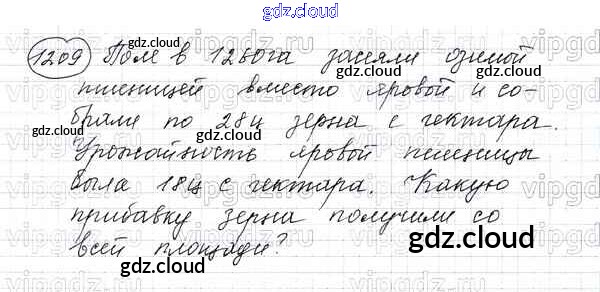 gdz.cloud
1209 Поле в 1260га засеяли озимой
gdz.cloud
пшеницей вместо яровой и со-
gdz.cloud
брали по 28ц зерна с гектара.
gdz.cloud
Урожайность яровой пшеницы
была 18ц с гектара. Какую
gdz.cloud
прибавку зерна получили со
gdz.cloud
всей площади?
gdz.cloud